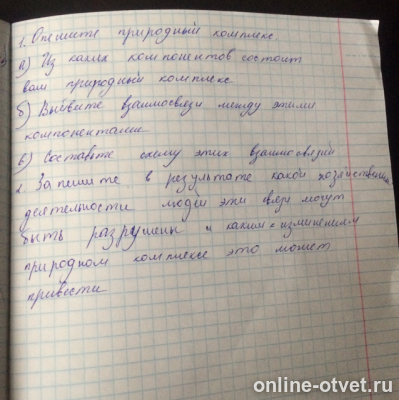 1. Опишите природный комплекс.
а) Из каких компонентов состоит
вам природный комплекс
б) Выявите взаимосвязи между этими
компонентами
в) Составьте схему этих взаимосвязей
2. Запишите в результате какой хозяйственной
деятельности людей эти связи могут
быть разрушены и каким к изменениям
природном комплексе это может
привести
online-otvet.ru